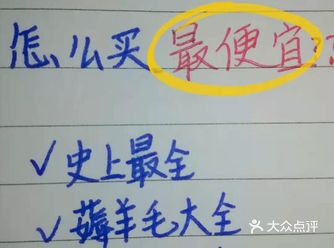 怎么买最便宜??
✓史上最全
✓薅羊毛大全
大众点评